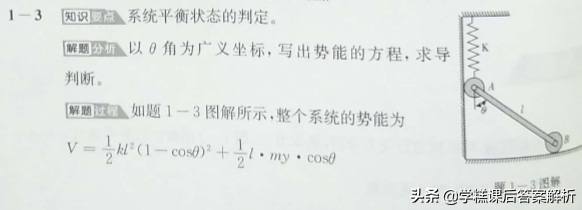 1-3 知识要点 系统平衡状态的判定。
解题分析 以θ角为广义坐标,写出势能的方程,求导
判断。
解题过程 如题1-3图解所示,整个系统的势能为
V = 1/2 kl²(1-cosθ)² + 1/2 l·my·cosθ
K
A
θ
l
B
题1-3图解
头条@学糕课后答案解析